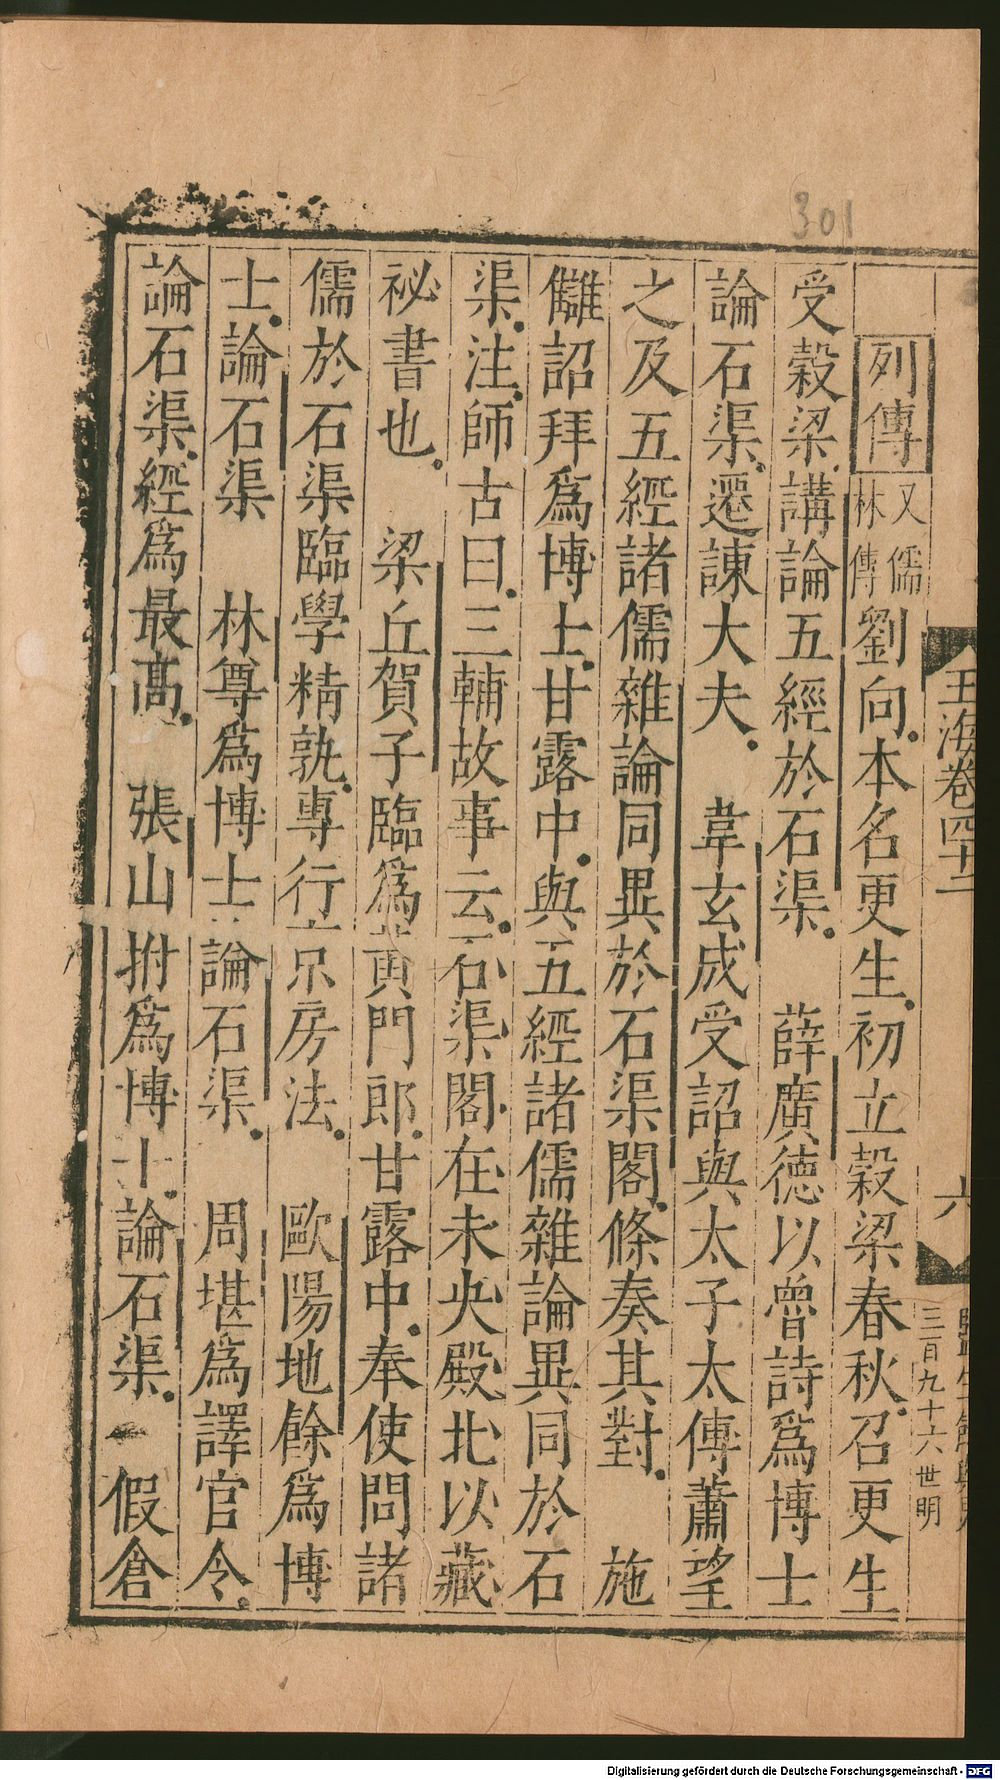 301
玉海卷四十二
六
三百九十六世明
列傳 又儒林傳 劉向本名更生初立穀梁春秋召更生
受穀梁講論五經於石渠 薛廣德以魯詩爲博士
論石渠遷諫大夫 韋玄成受詔與太子太傅蕭望
之及五經諸儒雜論同異於石渠閣條奏其對 施
讎詔拜爲博士甘露中與五經諸儒雜論異同於石
渠注師古曰三輔故事云石渠閣在未央殿北以藏
祕書也 梁丘賀子臨爲黃門郎甘露中奉使問諸
儒於石渠臨學精孰專行京房法 歐陽地餘爲博
士論石渠 林尊爲博士論石渠 周堪爲譯官令
論石渠經爲最高 張山拊爲博士論石渠 假倉
Digitalisierung gefördert durch die Deutsche Forschungsgemeinschaft - DFG